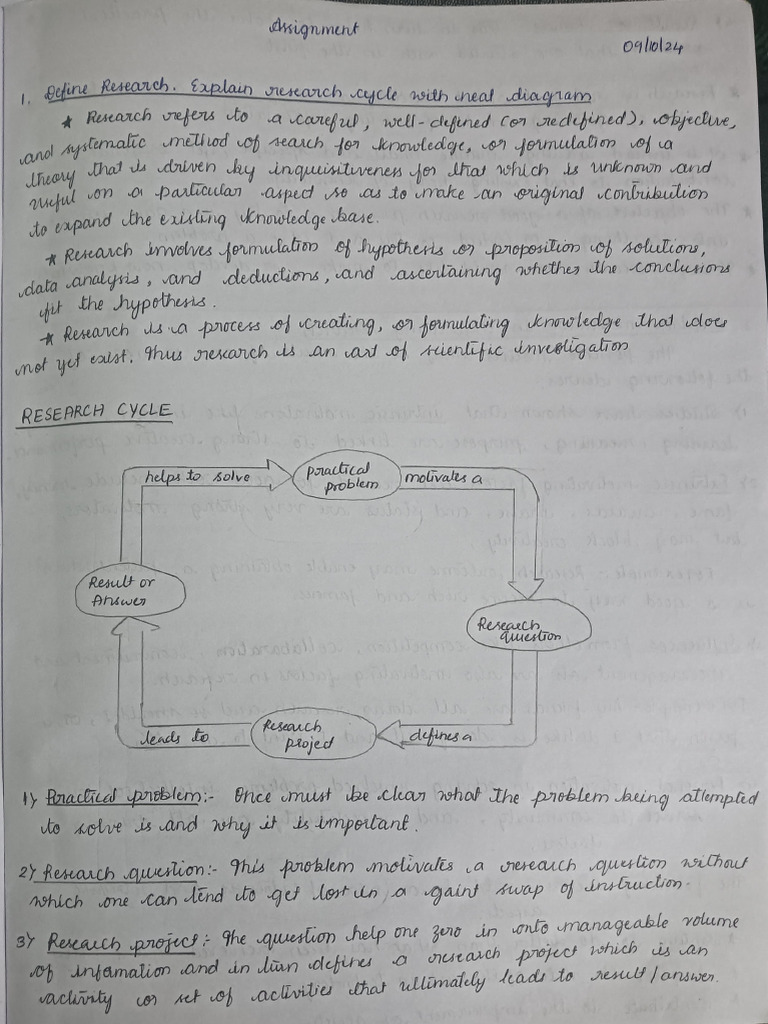 Assignment
09/10/24
1. Define Research. Explain research cycle with neat diagram
★ Research refers to a careful, well-defined (or redefined), objective,
and systematic method of search for knowledge, or formulation of a
theory that is driven by inquisitiveness for that which is unknown and
useful on a particular aspect so as to make an original contribution
to expand the existing knowledge base.
★ Research involves formulation of hypothesis or proposition of solutions,
data analysis, and deductions, and ascertaining whether the conclusions
fit the hypothesis.
★ Research is a process of creating, or formulating knowledge that does
not yet exist. Thus research is an art of scientific investigation
RESEARCH CYCLE
helps to solve
practical
problem
motivates a
Result or
Answer
Research
question
leads to
Research
project
defines a
1) Practical problem:- Once must be clear what the problem being attempted
to solve is and why it is important.
2) Research question:- This problem motivates a research question without
which one can tend to get lost in a gaint swap of instruction.
3) Research project:- The question help one zero in onto manageable volume
of infamation and in turn defines a research project which is an
activity or set of activities that ultimately leads to result/answer.